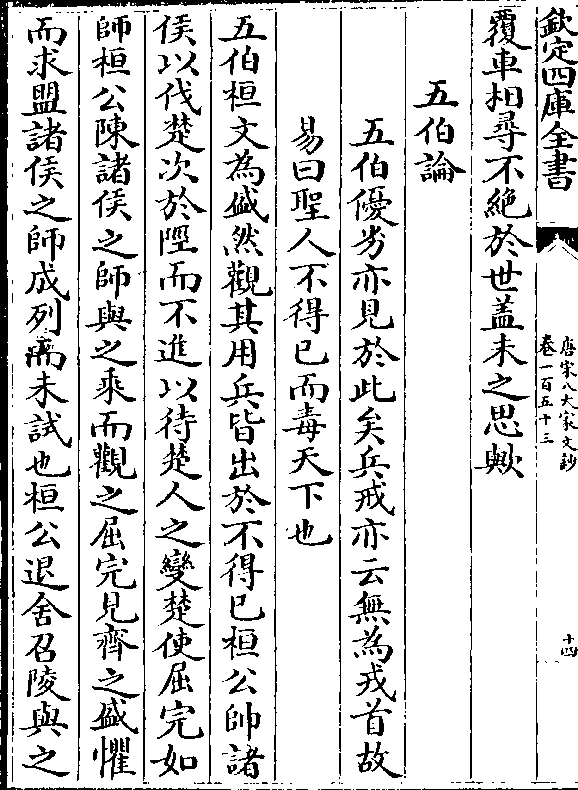 欽定四庫全書
唐宋八大家文鈔
卷一百五十三
十四
覆車相尋不絶於世蓋未之思歟
五伯論
五伯優劣亦見於此矣兵戒亦云無為戎首故
易曰聖人不得已而毒天下也
五伯桓文為盛然觀其用兵皆出於不得已桓公帥諸
侯以伐楚次於陘而不進以待楚人之變楚使屈完如
師桓公陳諸侯之師與之乘而觀之屈完見齊之盛懼
而求盟諸侯之師成列而未試也桓公退舍召陵與之